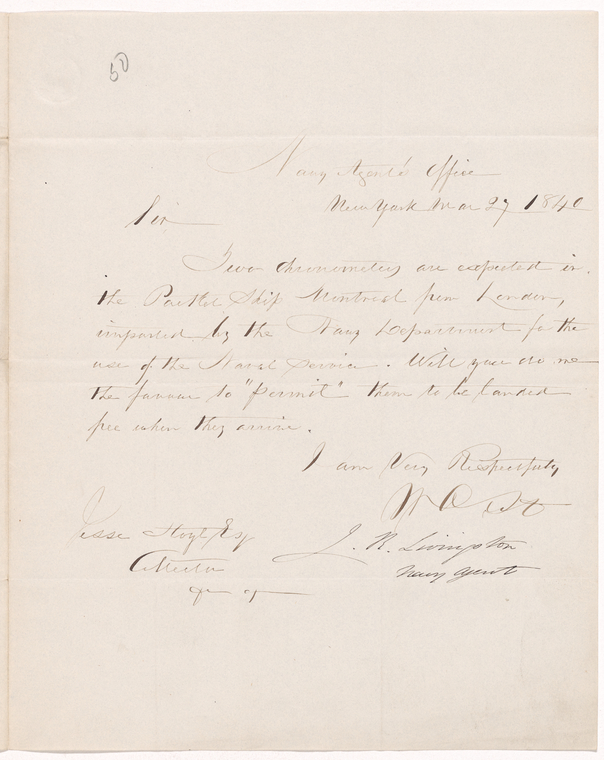 50
Navy Agent's Office
New York Mar 27 1840
Sir
Two chronometers are expected in
the Packet Ship Montreal from London,
imported by the Navy Department for the
use of the Naval Service. Will you do me
the favour to "permit" them to be landed
free when they arrive.
I am Very Respectfully
Yr Ob St
Jesse Hoyt Esq
J. R. Livingston
Collector
Navy Agent